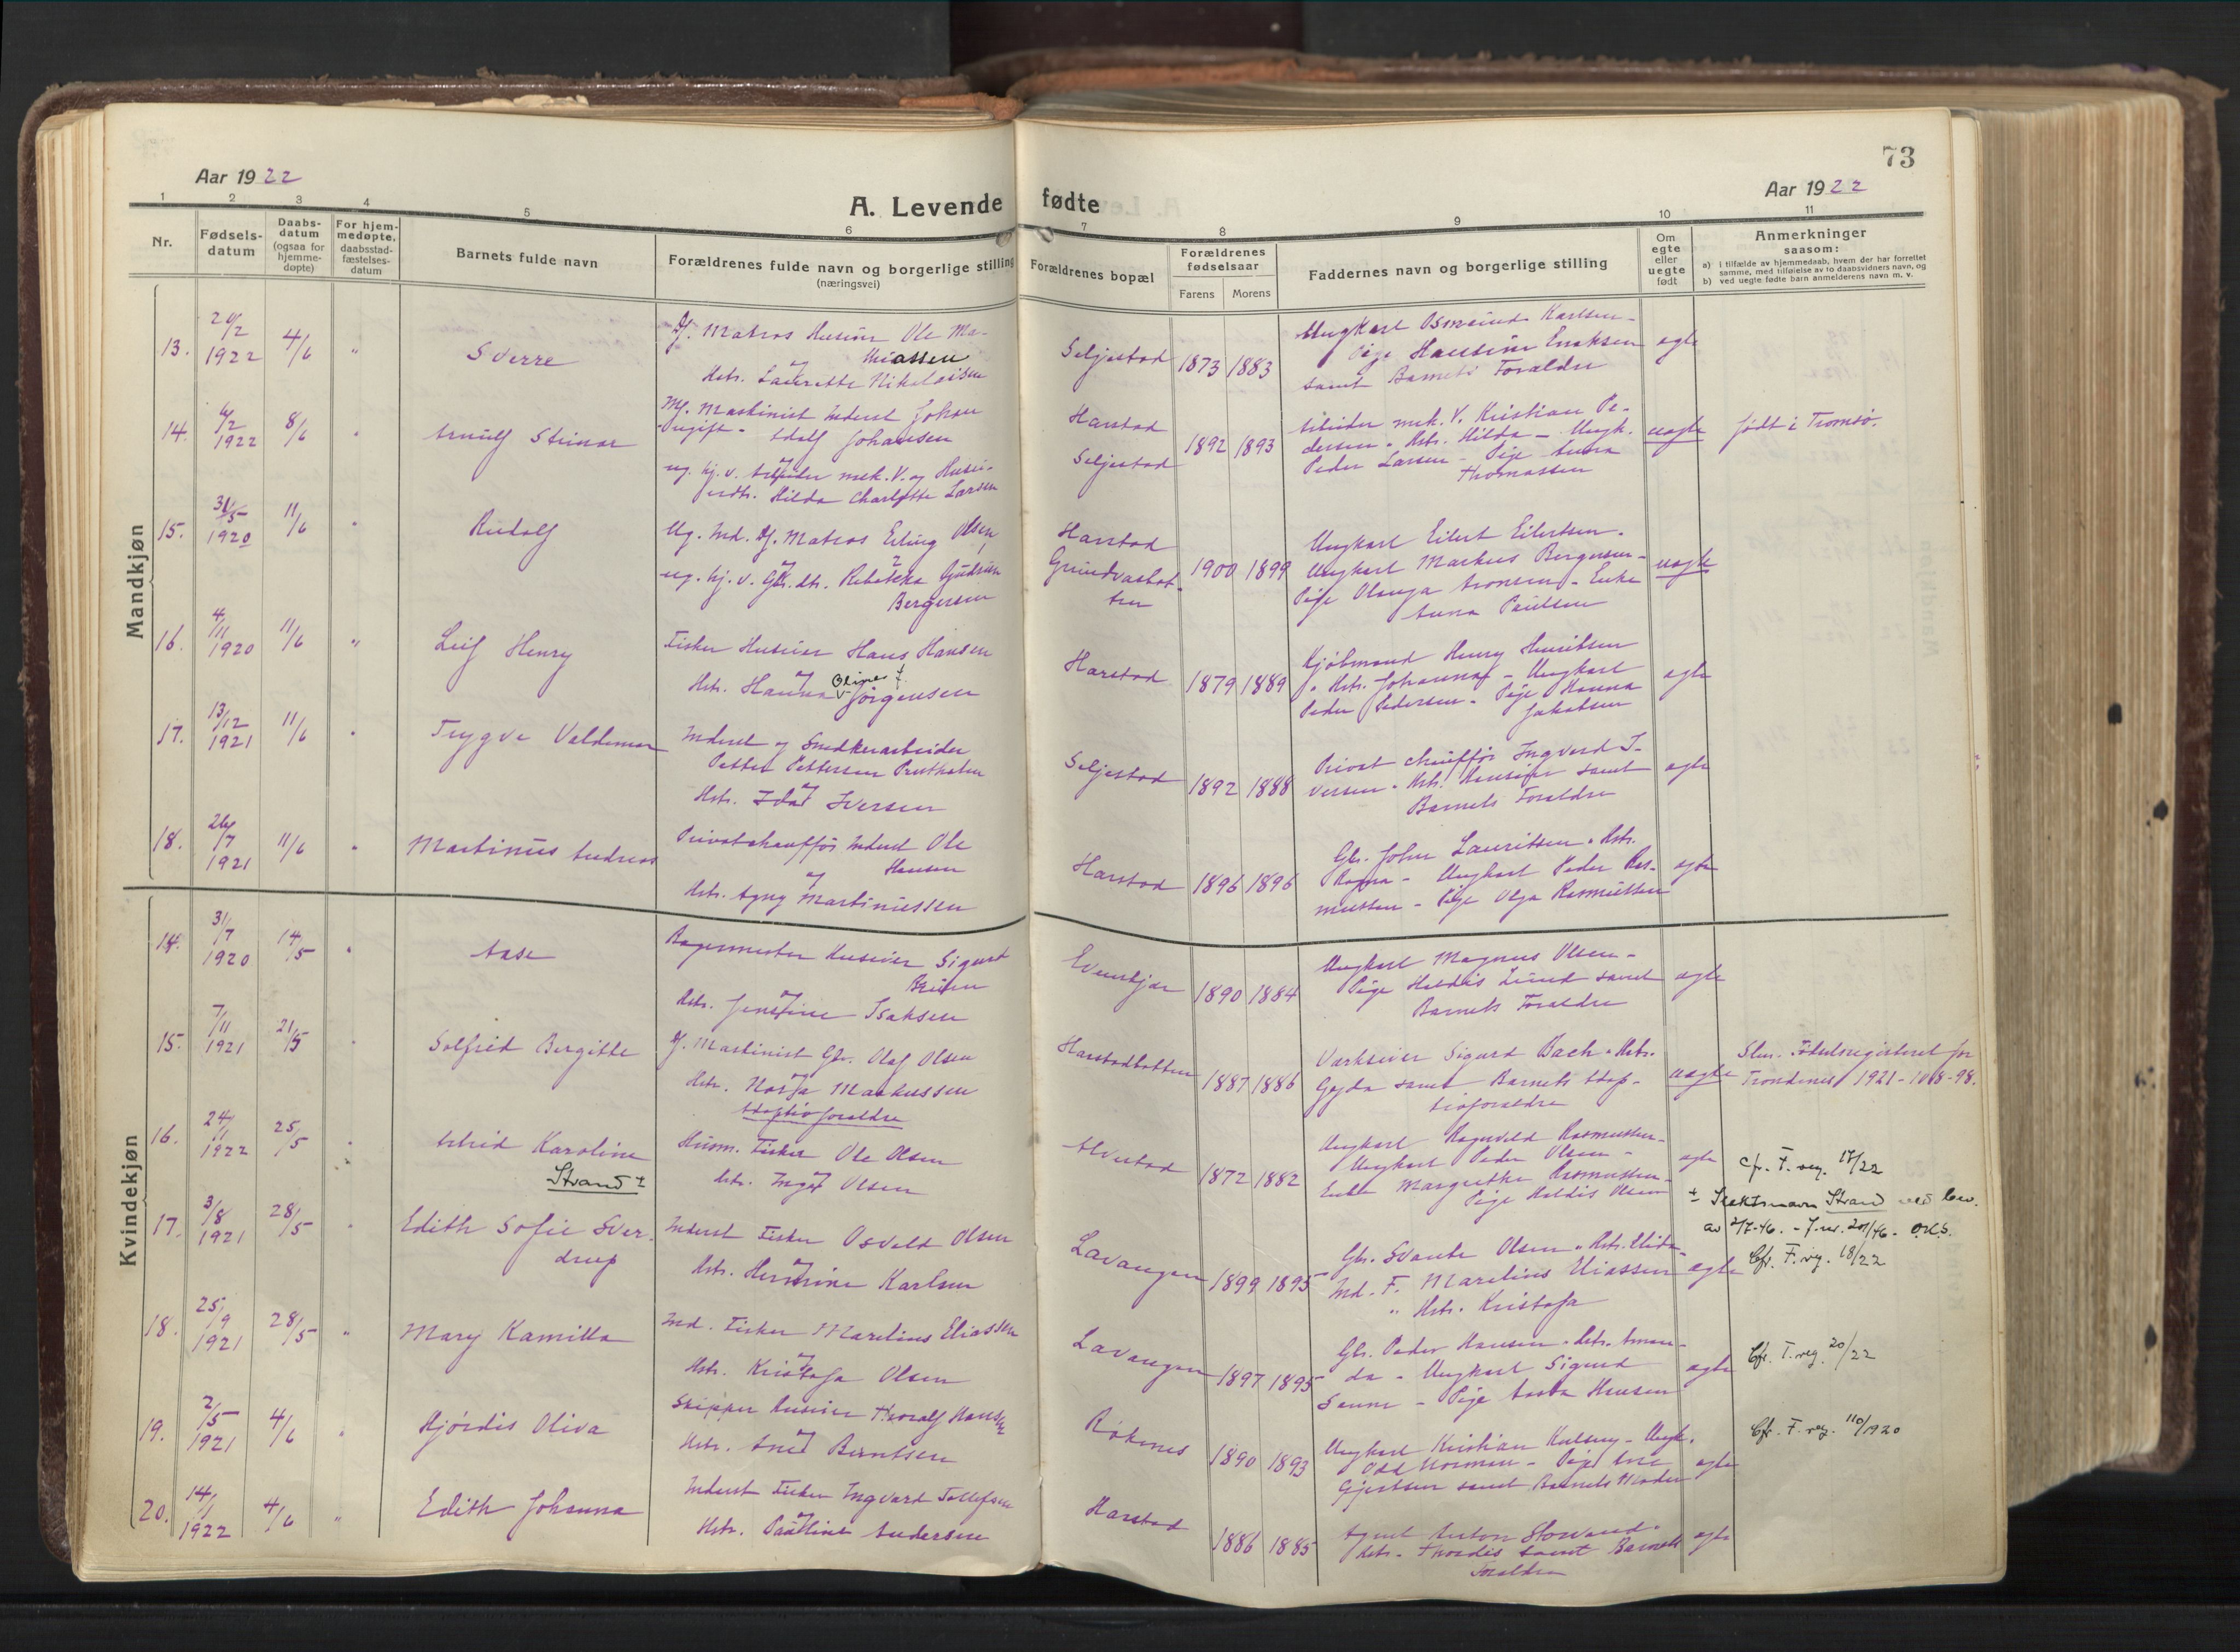 73
Aar 1922
Aar 1922
A. Levende fødte
1 2 3 4 5 6 7 8 9 10 11
Nr.
Fødsels-
datum
Daabs-
datum
(ogsaa for
hjemme-
døpte)
For hjem-
medøpte,
daabsstad-
fæstelses-
datum
Barnets fulde navn
Forældrenes fulde navn og borgerlige stilling
(næringsvei)
Forældrenes bopæl
Forældrenes
fødselsaar
Farens Morens
Faddernes navn og borgerlige stilling
Om
egte
eller
uegte
født
Anmerkninger
saasom:
a) i tilfælde av hjemmedaab, hvem der har forrettet
samme, med tilføielse av to daabsvidners navn, og
b) ved uegte fødte barn anmelderens navn m. v.
Mandkjøn
13. 1922 4/6 " Sverre
Matros Huseier Ole Ma-
thiassen
og
Hstr. Laurette Nikolaisen
Seljestad 1873 1883
Ungkarl Osmund Karlsen -
Pige Hansine Enoksen
samt Barnets Forældre
egte
14. 1922 8/6 " Arnulf Steinar
Maskinist Inderst Johan
Adolf Johansen
og
Hilda Charlotte Larsen
Harstad
Seljestad
1892 1893
mek. V. Kristian Pe-
dersen - Hstr. Hilda - Ungk.
Peder Larsen - Pige Anna
Thomassen
uegte
født i Tromsø.
15. 31/5 1920 11/6 " Rudolf
Ug. Ind. Matros Erling Olsen
og
ug. hj. v. Gbr. dtr. Rebekka Gudrun
Bergersen
Harstad
1900 1899
Ungkarl Eilert Eilertsen -
Ungkarl Markus Bergersen -
Pige Olunga Aronsen - Enke
Anna Paulsen
uegte
16. 4/11 1920 11/6 " Leif Henry
Fisker Huseier Hans Hansen
og
Hstr. Hanna Jørgensen
Harstad 1879 1889
Kjøbmand Henry Henriksen
" Hstr. Johanna - Ungkarl
Peder Pedersen - Pige Hanna
Jakobsen
egte
17. 13/12 1921 11/6 " Trygve Valdemar
Inderst og Snedkerarbeider
Petter Pettersen
og
Hstr. Ida Iversen
Seljestad 1892 1888
Privat chauffør Ingvard I-
versen - Hstr. Hansine samt
Barnets Forældre
egte
18. 26/7 1921 11/6 " Martinus Andreas
Privatchauffør Inderst Ole
Hansen
og
Hstr. Agny Martinussen
Harstad 1896 1896
Gbr. John Lauritsen - Hstr.
Ragna - Ungkarl Peder Ras-
mussen - Pige Olga Rasmussen
egte
Kvindekjøn
14. 31/7 1920 14/5 " Aase
Bagermester Huseier Sigurd
Bruun
og
Hstr. Jensine Isaksen
Evenskjær 1890 1884
Ungkarl Magnus Olsen -
Pige Haldis Lund samt
Barnets Forældre
egte
15. 7/11 1921 21/5 " Solfrid Bergitte
Maskinist Gbr. Olaf Olsen
og
Hstr. Nanja Markussen
Adoptivforældre
Harstadbotten 1887 1886
Værkseier Sigurd Bach - Hstr.
Gyda samt Barnets Adop-
tivforældre
uegte
Slur. Fødselsregisteret for
Trondenes 1921 - 1068-98.
16. 24/1 1922 25/5 " Astrid Karoline
Strand ±
Husm. Fisker Ole Olsen
og
Hstr. Inga Olsen
Alvestad 1872 1882
Ungkarl Ragnvald Rasmussen -
Ungkarl Peder Olsen -
Enke Margrethe Rasmussen -
Pige Haldis Olsen
egte
Cfr. F. reg. 17/22
± Slektsnavn Strand ved bev.
av 2/7-46. - J.nr. 201/46 - O.K.S.
17. 3/8 1921 28/5 " Edith Sofie Sver-
drup
Inderst Fisker Osvald Olsen
og
Hstr. Hermine Karlsen
Lavangen 1899 1895
Gbr. Svante Olsen
Ind. F. Marelius Eliassen
" Hstr. Kristofa
egte
Cfr. F. reg. 18/22
18. 25/9 1921 28/5 " Mary Kamilla
Ind. Fisker Marelius Eliassen
og
Hstr. Kristofa Olsen
Lavangen 1897 1895
Gbr. Peder Hansen - Hstr. Aman-
da - Ungkarl Sigurd
- Pige Aasta Hansen
egte
Cfr. F. reg. 20/22
19. 2/5 1921 4/6 " Hjørdis Oliva
Skipper Huseier Thoralf Hansen
og
Hstr. Berntsen
Røkenes 1890 1893
Ungkarl Kristian - Ungk.
Odd Normann - Pige
Gjertsen samt Barnets Moder
egte
Cfr. F. reg. 110/1920
20. 14/1 1922 4/6 " Edith Johanna
Inderst Fisker Ingvard Tollefsen
og
Hstr. Pauline Andersen
Harstad 1886 1885
Agent Anton
Hstr. Thordis samt Barnets
Forældre
egte